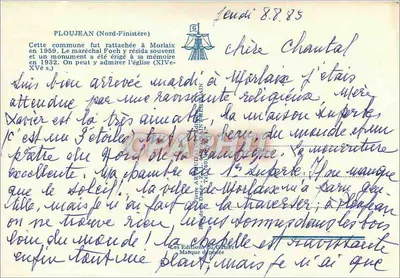 Jeudi 8.8.85
PLOUJEAN (Nord-Finistère)
Cette commune fut rattachée à Morlaix
en 1959. Le maréchal Foch y résida souvent
et un monument a été érigé à sa mémoire
en 1932. On peut y admirer l'église (XIVe-
XVe s.)
chère Chantal
Suis bien arrivée mardi à Morlaix j'étais
attendue par une ravissante religieuse. Mère
Xavier est très aimable, la maison superbe
(c'est un 3 étoiles) tout très beau du monde et un
prêtre du nourriture
excellente. Ma chambre de superbe. Il ne manque
que le soleil! La ville de Morlaix m'a paru gen-
tille, mais je n'ai fait que la traverser; à Ploujean
on ne trouve rien, nous sommes dans les bois
loin du monde! La chapelle est ravissante
enfin tout me plait, mais je n'ai que